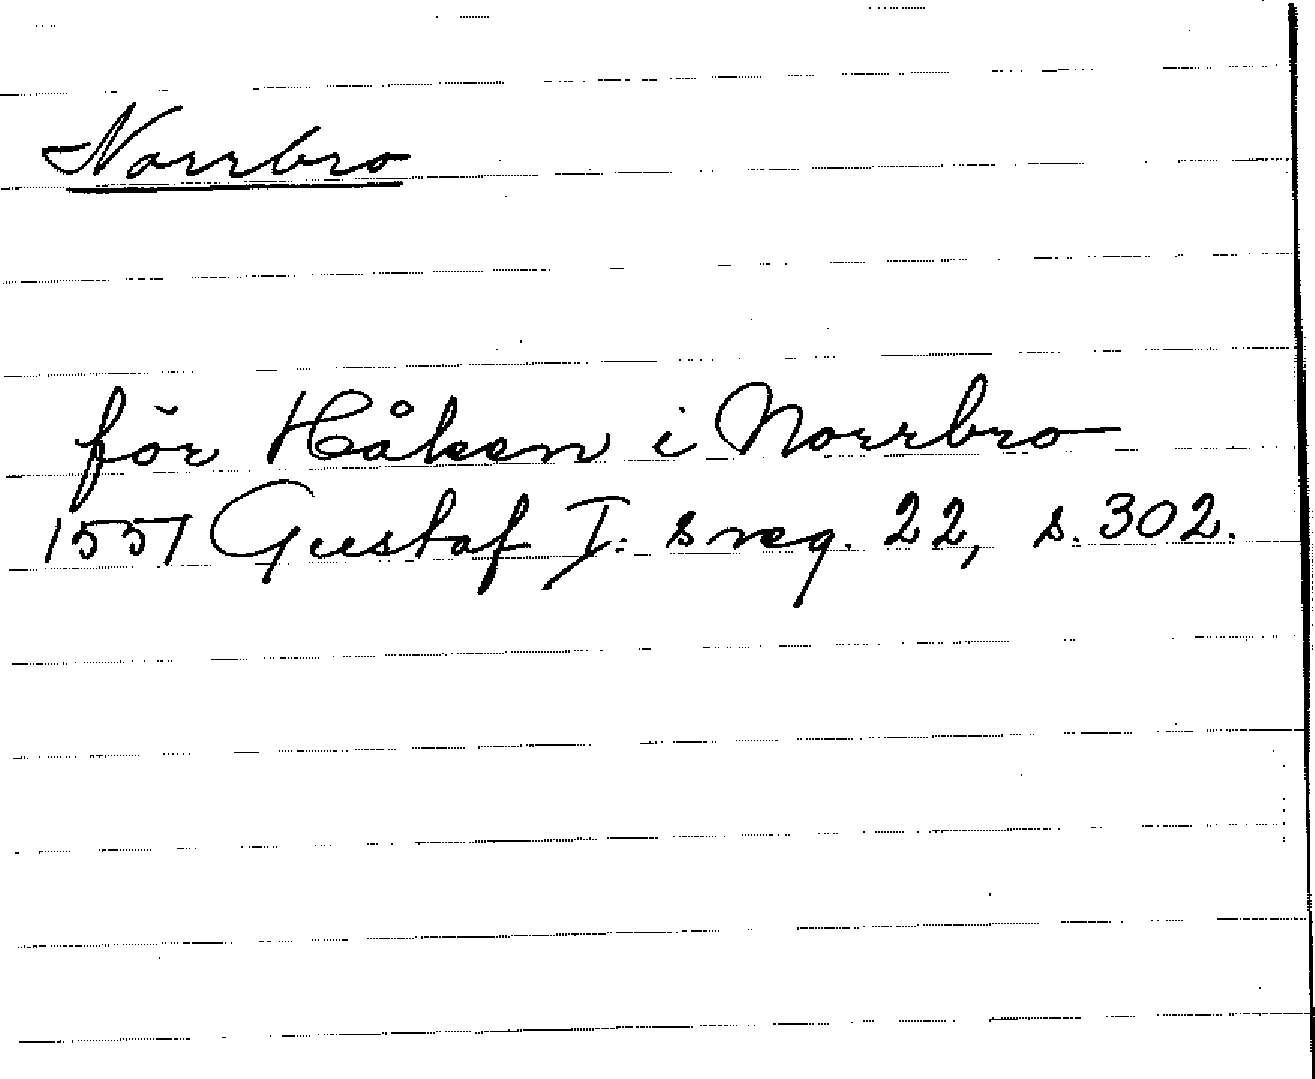 Norrbro
för Håken i Norrbro
1551 Gustaf I: s reg. 22, s. 302.